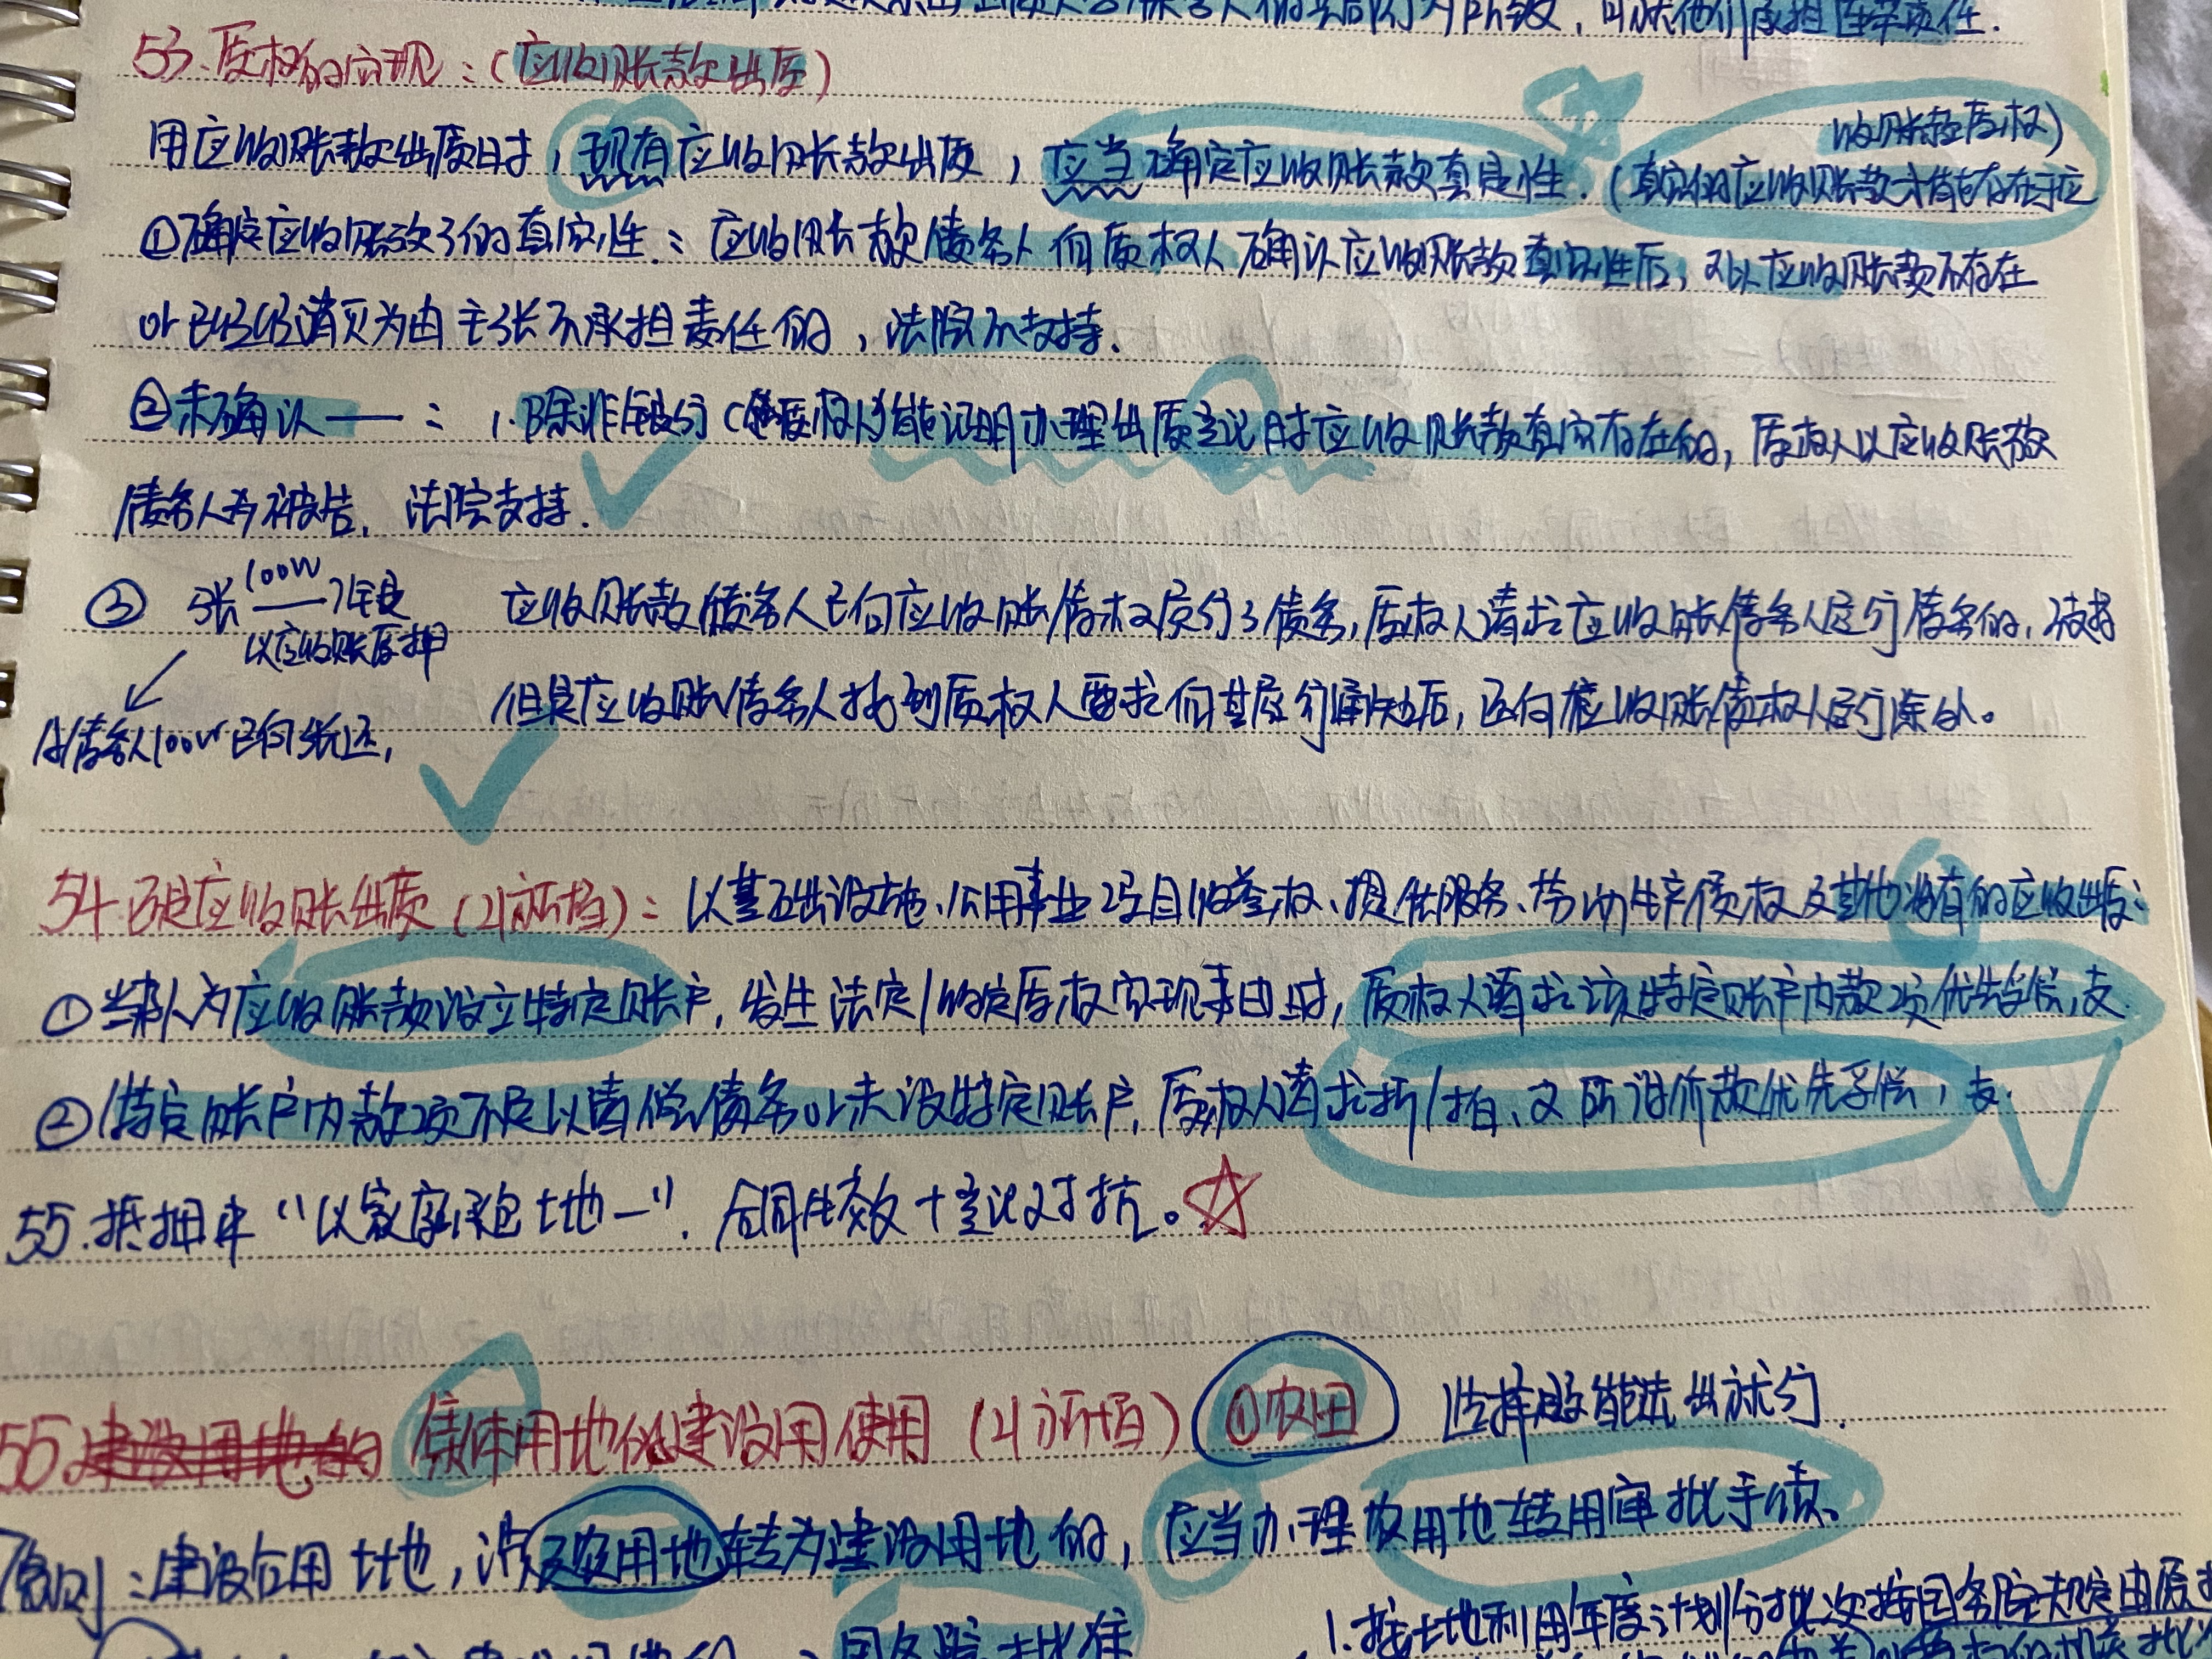 承担连带责任.
53.质权的实现:(应收账款出质)
收账款质权)
用应收账款出质时,现有应收账款出质,应当确定应收账款真实性.(真实的应收账款才能存在于应
①确定应收账款的真实性:应收账款债务人向质权人确认应收账款真实性后,又以应收账款不存在
or已经消灭为由主张不承担责任的,法院不支持.
②未确认——:1.除非银行(质权人)能证明办理出质登记时应收账款真实存在的,质权人以应收账款
债务人为被告,法院支持.
③ 张 100W 银 应收账款债务人已向应收账债权履行了债务,质权人请求应收账债务人履行债务的,不支持
以应收账质押
但是应收账债务人接到质权人要求向其履行通知后,还向应收账债权人履行除外。
债务人100W已向张还,
54.应收账出质(21新增):以基础设施、公用事业项目收益权、提供服务、劳动生产债权及其他将有的应收出质:
①当事人为应收账款设立特定账户,发生法定/约定质权实现事由时,质权人请求该特定账户内款项优先受偿,支.
②特定账户内款项不足以清偿债务or未设特定账户,质权人请求折/拍、变所得价款优先受偿,支.
55.抵押中“以家庭承包土地—”.合同生效+登记对抗。☆
55.集体用地做建设用使用(21新增) ①农田 选择题能选出就行.
原则:建设占用土地,涉及农用地转为建设用地的,应当办理农用地转用审批手续.
1.按土地利用年度计划分批次按国务院规定由原
国务院批准